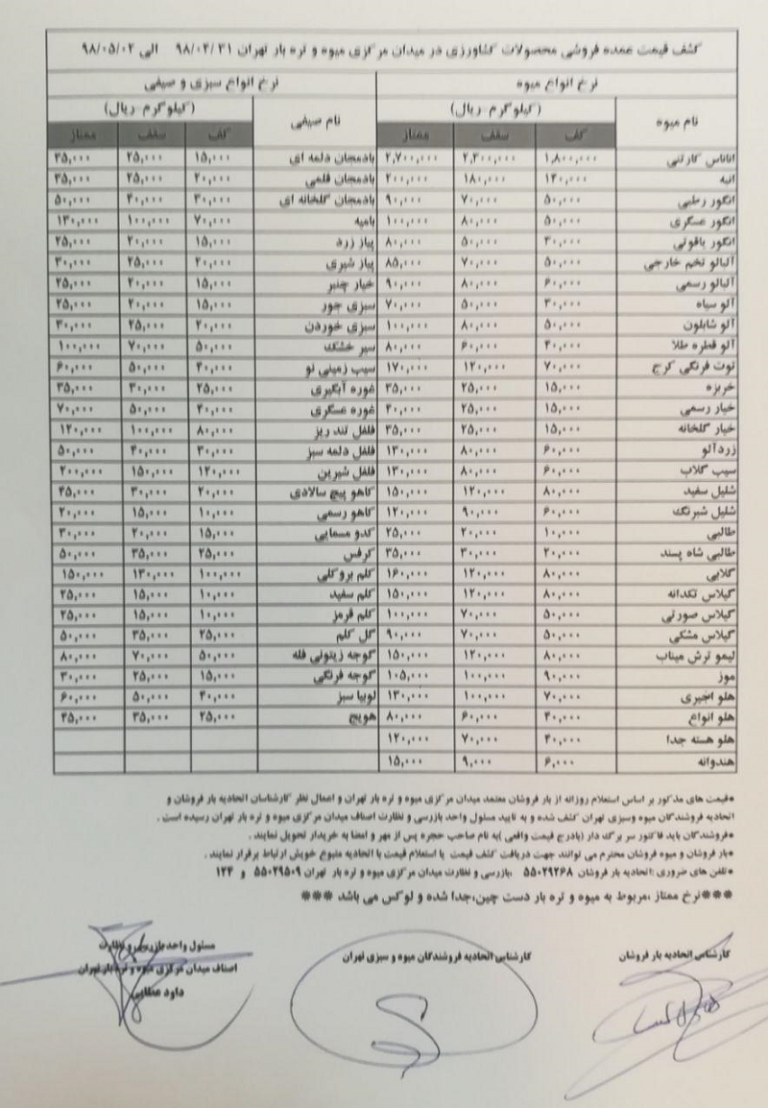 کشف قیمت عمده فروشی محصولات کشاورزی در میدان مرکزی میوه و تره بار تهران ۹۸/۰۴/۳۱ الی ۹۸/۰۵/۰۲
نرخ انواع میوه نرخ انواع سبزی و صیفی
نام میوه (کیلوگرم-ریال) نام صیفی (کیلوگرم-ریال)
کف سقف ممتاز کف سقف ممتاز
اناناس کارتنی ۱,۸۰۰,۰۰۰ ۲,۳۰۰,۰۰۰ ۲,۷۰۰,۰۰۰ بادمجان دلمه ای ۱۵,۰۰۰ ۲۵,۰۰۰ ۳۵,۰۰۰
انبه ۱۴۰,۰۰۰ ۱۸۰,۰۰۰ ۲۰۰,۰۰۰ بادمجان قلمی ۲۰,۰۰۰ ۲۵,۰۰۰ ۳۵,۰۰۰
انگور رطبی ۵۰,۰۰۰ ۷۰,۰۰۰ ۹۰,۰۰۰ بادمجان گلخانه ای ۳۰,۰۰۰ ۴۰,۰۰۰ ۵۰,۰۰۰
انگور عسگری ۵۰,۰۰۰ ۸۰,۰۰۰ ۱۰۰,۰۰۰ بامیه ۷۰,۰۰۰ ۱۰۰,۰۰۰ ۱۳۰,۰۰۰
انگور یاقوتی ۳۰,۰۰۰ ۵۰,۰۰۰ ۸۰,۰۰۰ پیاز زرد ۱۵,۰۰۰ ۲۰,۰۰۰ ۲۵,۰۰۰
آلبالو تخم خارجی ۵۰,۰۰۰ ۷۰,۰۰۰ ۸۵,۰۰۰ پیاز شیری ۲۰,۰۰۰ ۲۵,۰۰۰ ۳۰,۰۰۰
آلبالو رسمی ۶۰,۰۰۰ ۸۰,۰۰۰ ۹۰,۰۰۰ خیار چنبر ۱۵,۰۰۰ ۲۰,۰۰۰ ۲۵,۰۰۰
آلو سیاه ۳۰,۰۰۰ ۵۰,۰۰۰ ۷۰,۰۰۰ سبزی جور ۱۵,۰۰۰ ۲۰,۰۰۰ ۲۵,۰۰۰
آلو شابلون ۵۰,۰۰۰ ۸۰,۰۰۰ ۱۰۰,۰۰۰ سبزی خوردن ۲۰,۰۰۰ ۲۵,۰۰۰ ۳۰,۰۰۰
آلو قطره طلا ۴۰,۰۰۰ ۶۰,۰۰۰ ۸۰,۰۰۰ سیر خشک ۵۰,۰۰۰ ۷۰,۰۰۰ ۱۰۰,۰۰۰
توت فرنگی کرج ۷۰,۰۰۰ ۱۲۰,۰۰۰ ۱۷۰,۰۰۰ سیب زمینی نو ۴۰,۰۰۰ ۵۰,۰۰۰ ۶۰,۰۰۰
خربزه ۱۵,۰۰۰ ۲۵,۰۰۰ ۳۵,۰۰۰ غوره آبگیری ۲۵,۰۰۰ ۳۰,۰۰۰ ۳۵,۰۰۰
خیار رسمی ۱۵,۰۰۰ ۲۵,۰۰۰ ۴۰,۰۰۰ غوره عسگری ۴۰,۰۰۰ ۵۰,۰۰۰ ۷۰,۰۰۰
خیار گلخانه ۱۵,۰۰۰ ۲۵,۰۰۰ ۳۵,۰۰۰ فلفل تند ریز ۸۰,۰۰۰ ۱۰۰,۰۰۰ ۱۲۰,۰۰۰
زردآلو ۶۰,۰۰۰ ۸۰,۰۰۰ ۱۳۰,۰۰۰ فلفل دلمه سبز ۳۰,۰۰۰ ۴۰,۰۰۰ ۵۰,۰۰۰
سیب گلاب ۶۰,۰۰۰ ۸۰,۰۰۰ ۱۳۰,۰۰۰ فلفل شیرین ۱۲۰,۰۰۰ ۱۵۰,۰۰۰ ۲۰۰,۰۰۰
شلیل سفید ۸۰,۰۰۰ ۱۲۰,۰۰۰ ۱۵۰,۰۰۰ کاهو پیچ سالادی ۲۰,۰۰۰ ۳۰,۰۰۰ ۴۵,۰۰۰
شلیل شبرنگ ۶۰,۰۰۰ ۹۰,۰۰۰ ۱۲۰,۰۰۰ کاهو رسمی ۱۰,۰۰۰ ۱۵,۰۰۰ ۲۰,۰۰۰
طالبی ۱۰,۰۰۰ ۲۰,۰۰۰ ۲۵,۰۰۰ کدو مسمایی ۱۵,۰۰۰ ۲۰,۰۰۰ ۳۰,۰۰۰
طالبی شاه پسند ۲۰,۰۰۰ ۳۰,۰۰۰ ۳۵,۰۰۰ کرفس ۲۵,۰۰۰ ۳۵,۰۰۰ ۵۰,۰۰۰
گلابی ۸۰,۰۰۰ ۱۲۰,۰۰۰ ۱۶۰,۰۰۰ کلم بروکلی ۱۰۰,۰۰۰ ۱۳۰,۰۰۰ ۱۵۰,۰۰۰
گیلاس تکدانه ۸۰,۰۰۰ ۱۲۰,۰۰۰ ۱۵۰,۰۰۰ کلم سفید ۱۰,۰۰۰ ۱۵,۰۰۰ ۲۵,۰۰۰
گیلاس صورتی ۵۰,۰۰۰ ۷۰,۰۰۰ ۱۰۰,۰۰۰ کلم قرمز ۱۰,۰۰۰ ۱۵,۰۰۰ ۲۵,۰۰۰
گیلاس مشکی ۵۰,۰۰۰ ۷۰,۰۰۰ ۹۰,۰۰۰ گل کلم ۲۵,۰۰۰ ۳۵,۰۰۰ ۵۰,۰۰۰
لیمو ترش میناب ۸۰,۰۰۰ ۱۲۰,۰۰۰ ۱۵۰,۰۰۰ گوجه زیتونی فله ۵۰,۰۰۰ ۷۰,۰۰۰ ۸۰,۰۰۰
موز ۹۰,۰۰۰ ۱۰۰,۰۰۰ ۱۰۵,۰۰۰ گوجه فرنگی ۱۵,۰۰۰ ۲۵,۰۰۰ ۳۰,۰۰۰
هلو انجیری ۷۰,۰۰۰ ۱۰۰,۰۰۰ ۱۳۰,۰۰۰ لوبیا سبز ۴۰,۰۰۰ ۵۰,۰۰۰ ۶۰,۰۰۰
هلو انواع ۴۰,۰۰۰ ۶۰,۰۰۰ ۸۰,۰۰۰ هویج ۲۵,۰۰۰ ۳۵,۰۰۰ ۴۵,۰۰۰
هلو هسته جدا ۴۰,۰۰۰ ۷۰,۰۰۰ ۱۲۰,۰۰۰
هندوانه ۶,۰۰۰ ۹,۰۰۰ ۱۵,۰۰۰
*قیمت های مذکور بر اساس استعلام روزانه از بار فروشان معتمد میدان مرکزی میوه و تره بار تهران و اعمال نظر کارشناسان اتحادیه بار فروشان و
اتحادیه فروشندگان میوه وسبزی تهران کشف شده و به تایید مسئول واحد بازرسی و نظارت اصناف میدان مرکزی میوه و تره بار تهران رسیده است .
*فروشندگان باید فاکتور سر برگ دار (بادرج قیمت واقعی )به نام صاحب حجره پس از مهر و امضا به خریدار تحویل نمایند .
*بار فروشان و میوه فروشان محترم می توانند جهت دریافت کشف قیمت یا استعلام قیمت با اتحادیه متبوع خویش ارتباط برقرار نمایند .
*تلفن های ضروری :اتحادیه بار فروشان ۵۵۰۲۹۲۶۸ ،بازرسی و نظارت میدان مرکزی میوه و تره بار تهران ۵۵۰۲۹۵۰۹ و ۱۲۴
***نرخ ممتاز ،مربوط به میوه و تره بار دست چین،جدا شده و لوکس می باشد ***
کارشناس اتحادیه بار فروشان
کارشناس اتحادیه فروشندگان میوه و سبزی تهران
مسئول واحد بازرسی و نظارت
اصناف میدان مرکزی میوه و تره بار تهران
داود عطایی